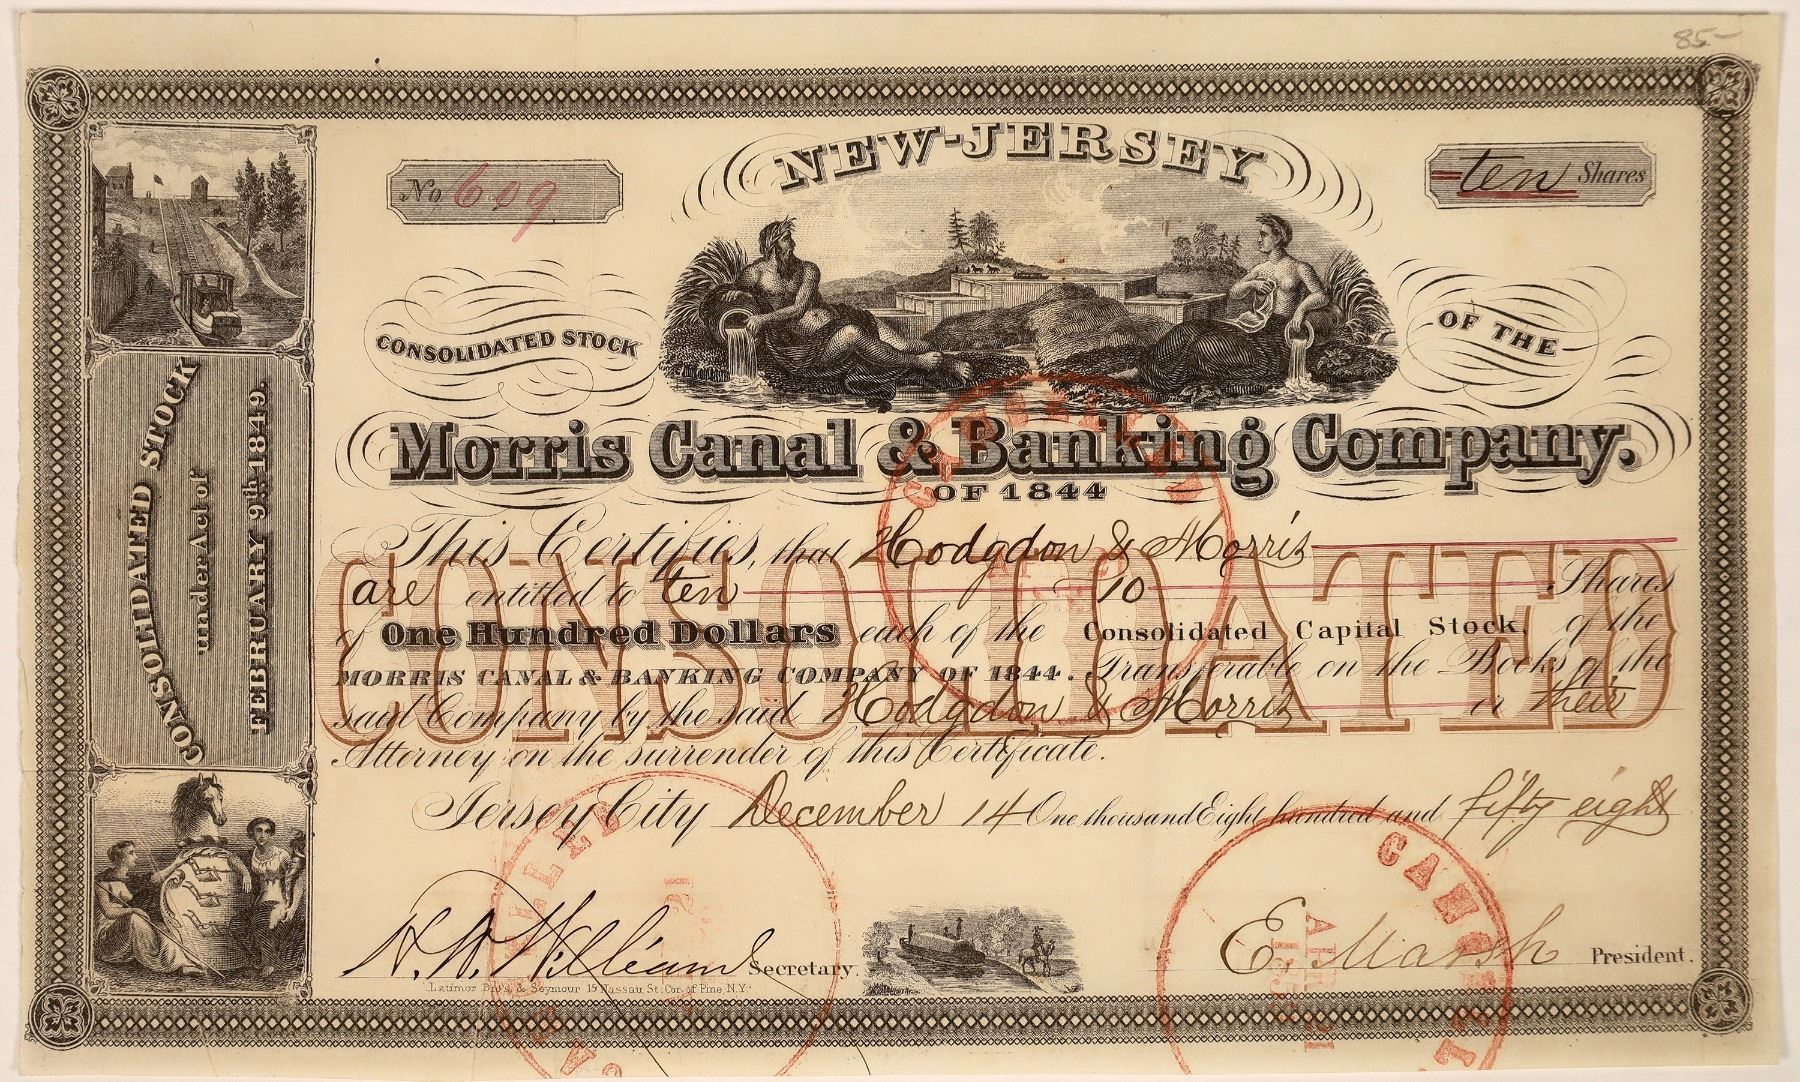 85-
NEW-JERSEY
No 609
ten Shares
CONSOLIDATED STOCK
OF THE
Morris Canal & Banking Company.
OF 1844
CONSOLIDATED STOCK
under Act of
FEBRUARY 9th 1849.
CONSOLIDATED
This Certifies, that Hodgdon & Morris
are entitled to ten 10 Shares
of One Hundred Dollars each of the Consolidated Capital Stock, of the
MORRIS CANAL & BANKING COMPANY OF 1844. Transferable on the Books of the
said Company by the said Hodgdon & Morris or their
Attorney on the surrender of this Certificate.
Jersey City December 14 One thousand Eight hundred and fifty eight
Williams Secretary.
E. Marsh President.
Latimer Bro's, & Seymour 15 Nassau St. Cor. of Pine, N.Y.
CANCELLED
CANCELLED
CANCELLED